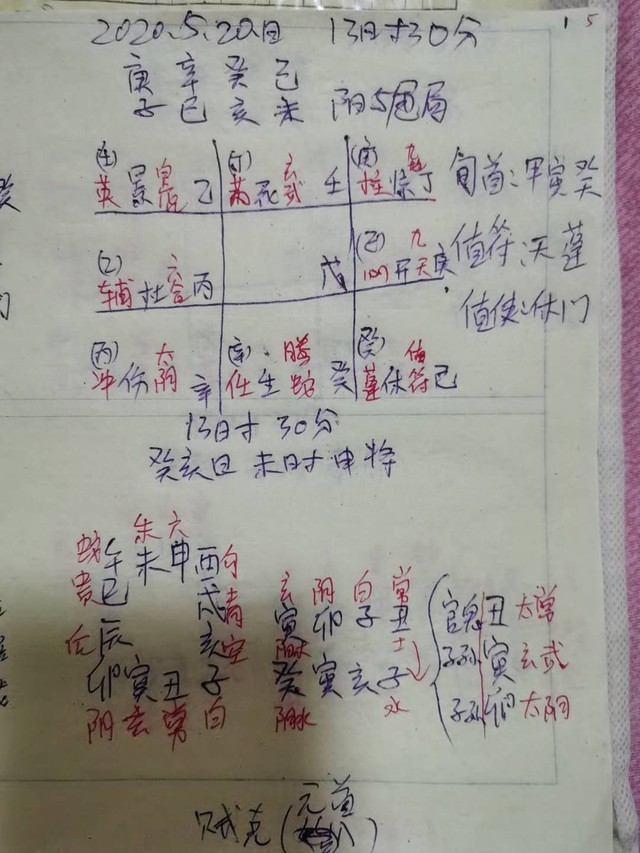 1 5
2020.5.20日 13日寸30分
庚 辛 癸 己
子 巳 亥 未 阳5局
(壬) 英 景 乙
(丁) 芮 死 玄武 壬
(庚) 柱 惊 丁
旬首:甲寅癸
(乙) 辅 杜 六合 丙
戊
开 九天 庚
值符:天蓬
值使:休门
(丙) 冲 伤 太阴 辛
(辛) 任 生 腾蛇 癸
(癸) 蓬 休 值符 己
13日寸 30分
癸亥日 未时申将
朱 六
蛇 午 未 申 酉 勾
贵 巳 戌 青
辰 亥 空
卯 寅 丑 子
阴 玄 常 白
玄 阴 白 常
寅 卯 子 丑
阴水 土
癸 寅 亥 子
阴水 水
官鬼 丑 太常
子孙 寅 玄武
子孙 卯 太阴
贼克(元首)